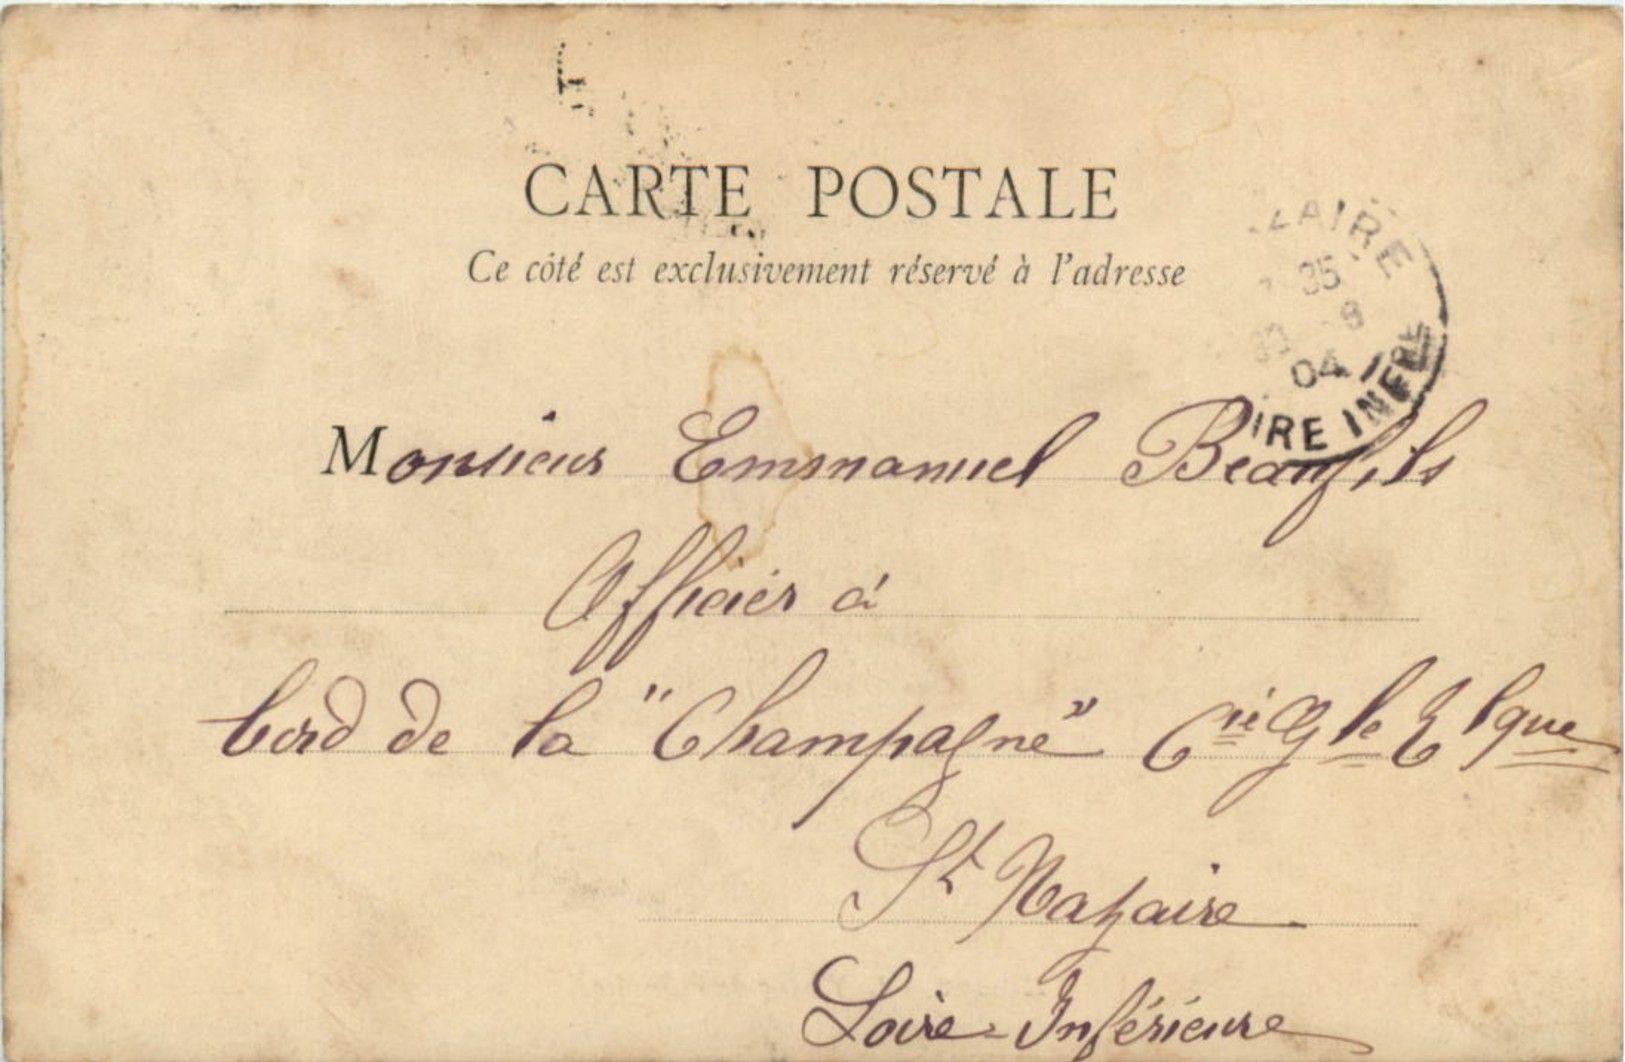 CARTE POSTALE
Ce côté est exclusivement réservé à l'adresse
ZAIRE
35
8
04
IRE INFRE
Monsieur Emmanuel Beaufils
Officier à
bord de la "Champagne" Cie Gle Tlque
St Nazaire
Loire-Inférieure